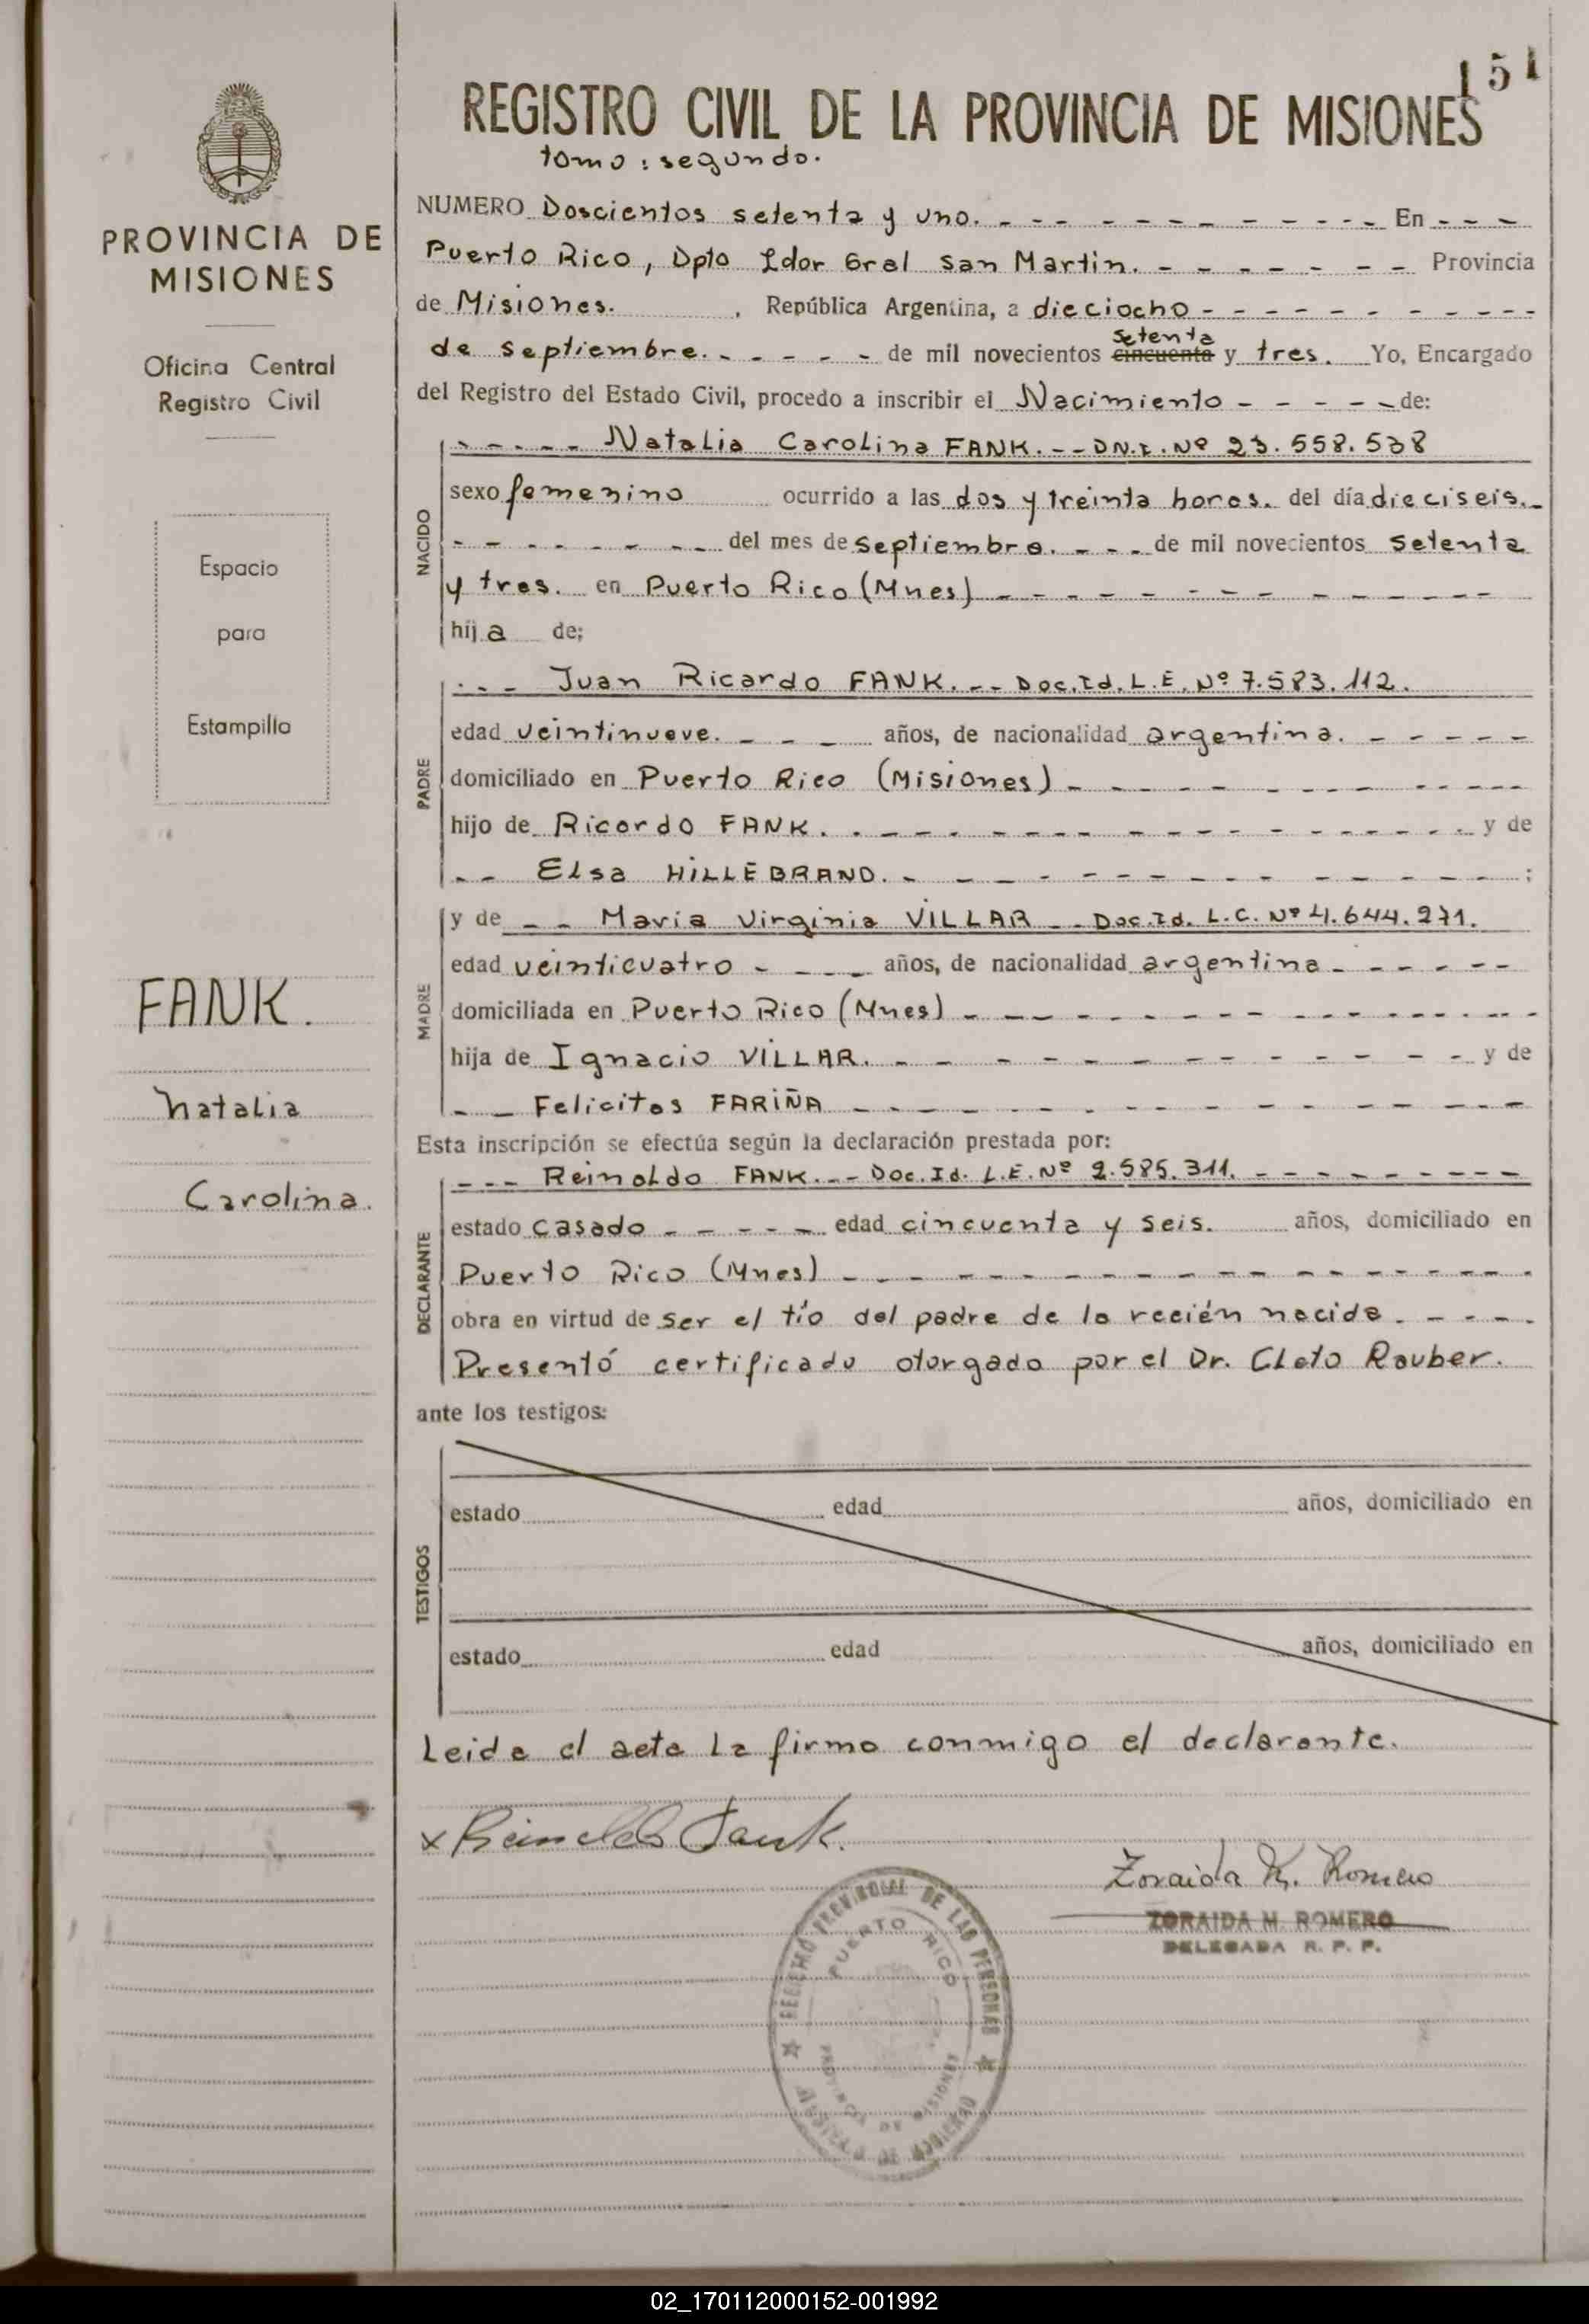 151
REGISTRO CIVIL DE LA PROVINCIA DE MISIONES
tomo: segundo.
PROVINCIA DE
MISIONES
Oficina Central
Registro Civil
Espacio
para
Estampilla
FANK.
Natalia
Carolina.
NUMERO Doscientos setenta y uno. - - - - - - - - - - - En - - -
Puerto Rico, Dpto Ldor Gral San Martin. - - - - - - - Provincia
de Misiones. , República Argentina, a dieciocho - - - - - - - - - -
setenta
de septiembre. - - - - - de mil novecientos cincuenta y tres. Yo, Encargado
del Registro del Estado Civil, procedo a inscribir el Nacimiento - - - - - de:
NACIDO
- - - - - Natalia Carolina FANK. - - D.N.I. Nº 23.558.538
sexo femenino ocurrido a las dos y treinta horas. del día dieciseis. -
- - - - - - - - del mes de septiembre. - - - de mil novecientos setenta
y tres. en Puerto Rico (Mnes) - - - - - - - - - - - -
hija de;
PADRE
- - - Juan Ricardo FANK. - - Doc. Id. L.E. Nº 7.583.112.
edad veintinueve. - - - años, de nacionalidad argentina. - - - - -
domiciliado en Puerto Rico (Misiones) - - - - - - - - - -
hijo de Ricardo FANK. - - - - - - - - - - - - - y de
- - Elsa HILLEBRAND. - - - - - - - - - - - - - ;
MADRE
y de - - Maria Virginia VILLAR - - Doc. Id. L.C. Nº 4.644.271.
edad veinticuatro - - - - años, de nacionalidad argentina - - - - - -
domiciliada en Puerto Rico (Mnes) - - - - - - - - - - - - - -
hija de Ignacio VILLAR. - - - - - - - - - - - - y de
- - Felicitas FARIÑA - - - - - - - - - - - - -
Esta inscripción se efectúa según la declaración prestada por:
DECLARANTE
- - - Reinaldo FANK. - - Doc. Id. L.E. Nº 2.585.311. - - - - - - - -
estado casado - - - - - edad cincuenta y seis. años, domiciliado en
Puerto Rico (Mnes) - - - - - - - - - - - - - - - -
obra en virtud de ser el tío del padre de la recién nacida. - - - -
Presentó certificado otorgado por el Dr. Cleto Rauber.
ante los testigos:
TESTIGOS
estado edad años, domiciliado en
estado edad años, domiciliado en
Leida el acta la firma conmigo el declarante.
x Reinaldo Fank.
Zoraida M. Romero
ZORAIDA M. ROMERO
DELEGADA R. P. P.
REGISTRO PROVINCIAL DE LAS PERSONAS
PUERTO RICO
PROVINCIA DE MISIONES
MINISTERIO DE GOBIERNO
02_170112000152-001992